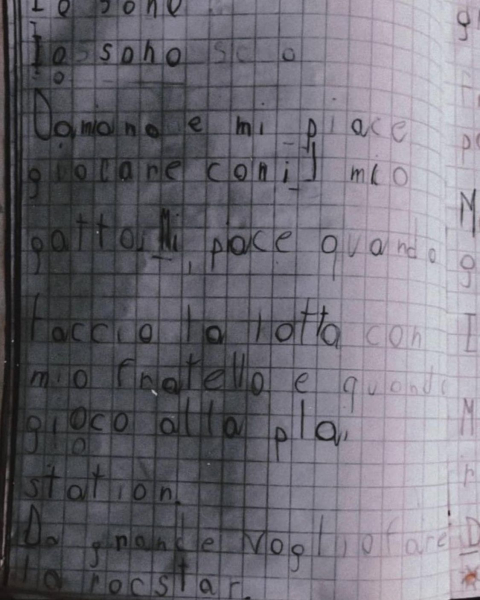 Io sono
Io sono sc o
Damiano e mi piace
giocare con il mio
gatto. Mi piace quando
faccio la lotta con
mio fratello e quando
gioco alla pla
station.
Da grande voglio fare
la rocstar.